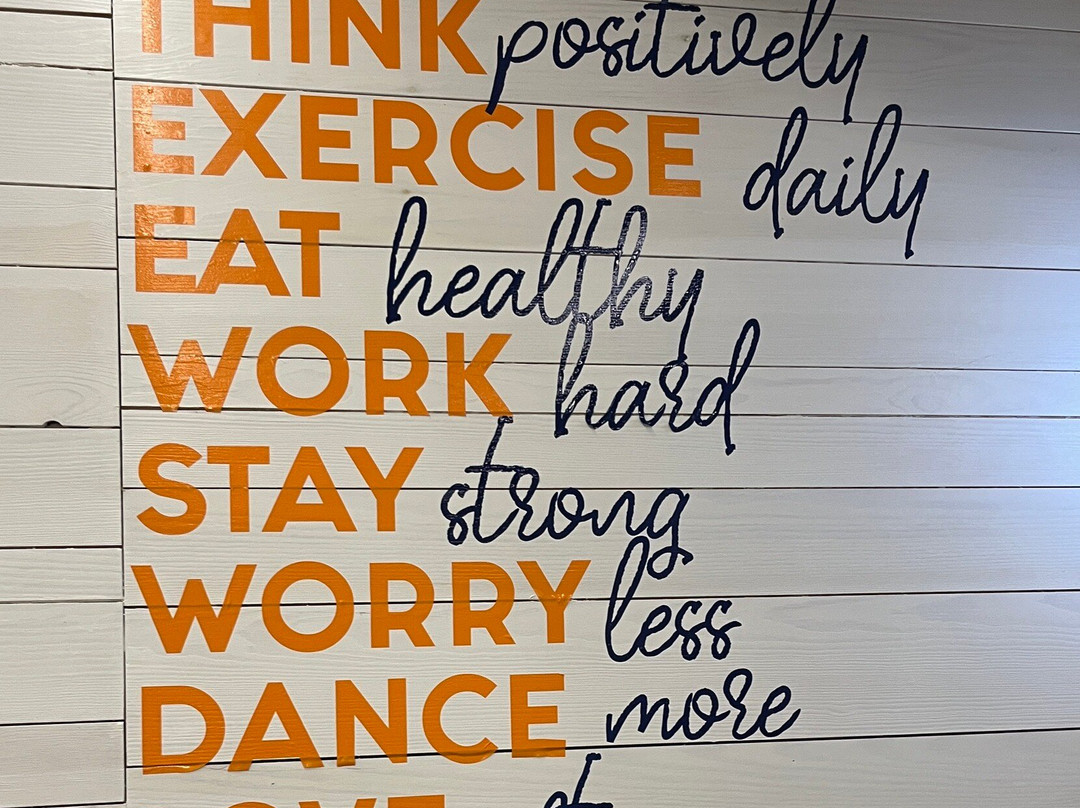 THINK positively
EXERCISE daily
EAT healthy
WORK hard
STAY strong
WORRY less
DANCE more